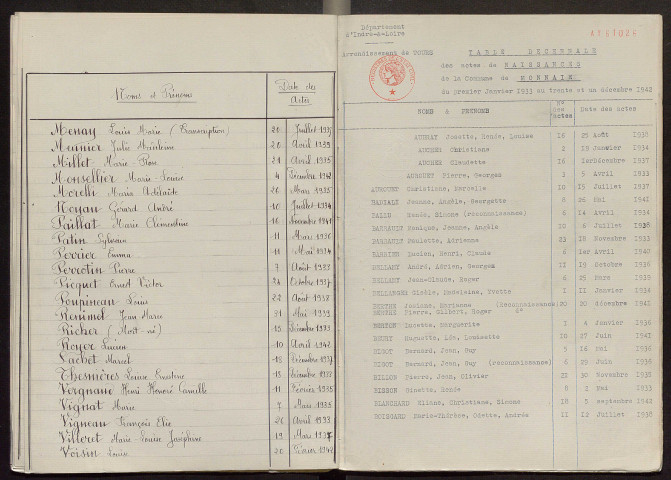 Noms et Prénoms Date des Actes
Menay Louis Marie (Transcription) 20 Juillet 1937
Meunier Julie Mainteine 20 Avril 1939
Millet Marie-Rose 21 Avril 1935
Monsellier Marie-Louise 4 Décembre 1942
Morelli Maria Adélaïde 20 Mars 1935
Noyau Gérard André 10 Juillet 1934
Paillat Marie Clémentine 16 Novembre 1941
Patin Sylvain 11 Mars 1936
Perrier Emma 11 Mai 1934
Perrotin Pierre 7 Août 1933
Picquet Ernest Victor 24 Octobre 1937
Poupineau Louis 22 Août 1938
Renimel Jean Marie 31 Mai 1939
Richer (Mort-né) 15 Décembre 1939
Royer Lucien 10 Avril 1942
Sachet Marcel 18 Décembre 1937
Thesmières Louise Ernestine 13 Décembre 1938
Vergnaud Henri Honoré Camille 11 Février 1935
Vignat Marie 7 Mars 1935
Vigneau François Elie 26 Avril 1933
Villeret Marie Louise Joséphine 19 Mars 1937
Voisin Louise 20 Février 1942
Département
d'Indre-&-Loire
Arrondissement de TOURS TABLE DECENNALE
des actes de NAISSANCES
de la Commune de MONNAIE
du premier Janvier 1933 au trente et un décembre 1942
NOMS & PRENOMS N° des Actes Date des actes
AUBRAY Josette, Renée, Louise 18 25 Août 1938
AUGERE Christiane 2 18 Janvier 1934
AUGERE Claudette 16 1er Décembre 1937
AUROUET Pierre, Georges 3 5 Avril 1933
AUROUET Christiane, Marcelle 10 15 Juillet 1937
BADIALE Jeanne, Angèle, Georgette 8 26 Mai 1941
BALLU Renée, Simone (reconnaissance) 8 14 Avril 1934
BARRAULT Monique, Jeanne, Angèle 10 6 Juillet 1938
BARRAULT Paulette, Adrienne 23 18 Novembre 1933
BARRIER Lucien, Henri, Claude 6 1er Avril 1940
BELLART André, Adrien, Georges 12 19 Octobre 1936
BELLART Jean-Claude, Roger 6 25 Mars 1939
BELLANGER Gisèle, Madeleine, Yvette 1 11 Janvier 1934
BERTHE Josiane, Marianne (Reconnaissance) 20 20 Décembre 1941
BERTHE Pierre, Gilbert, Roger d°
BERTON Lucette, Marguerite 1 4 Janvier 1936
BEURY Huguette, Léa, Louisette 10 27 Juin 1941
BIGOT Bernard, Jean, Guy 5 16 Mai 1936
BIGOT Bernard, Jean, Guy (reconnaissance) 6 27 Juin 1936
BILLON Pierre, Jean, Olivier 22 30 Novembre 1935
BISSON Ginette, Renée 8 2 Mai 1933
BLANCHARD Eliane, Christiane, Simone 18 3 Septembre 1942
BOISGARD Marie-Thérèse, Odette, Andrée 11 12 Juillet 1938